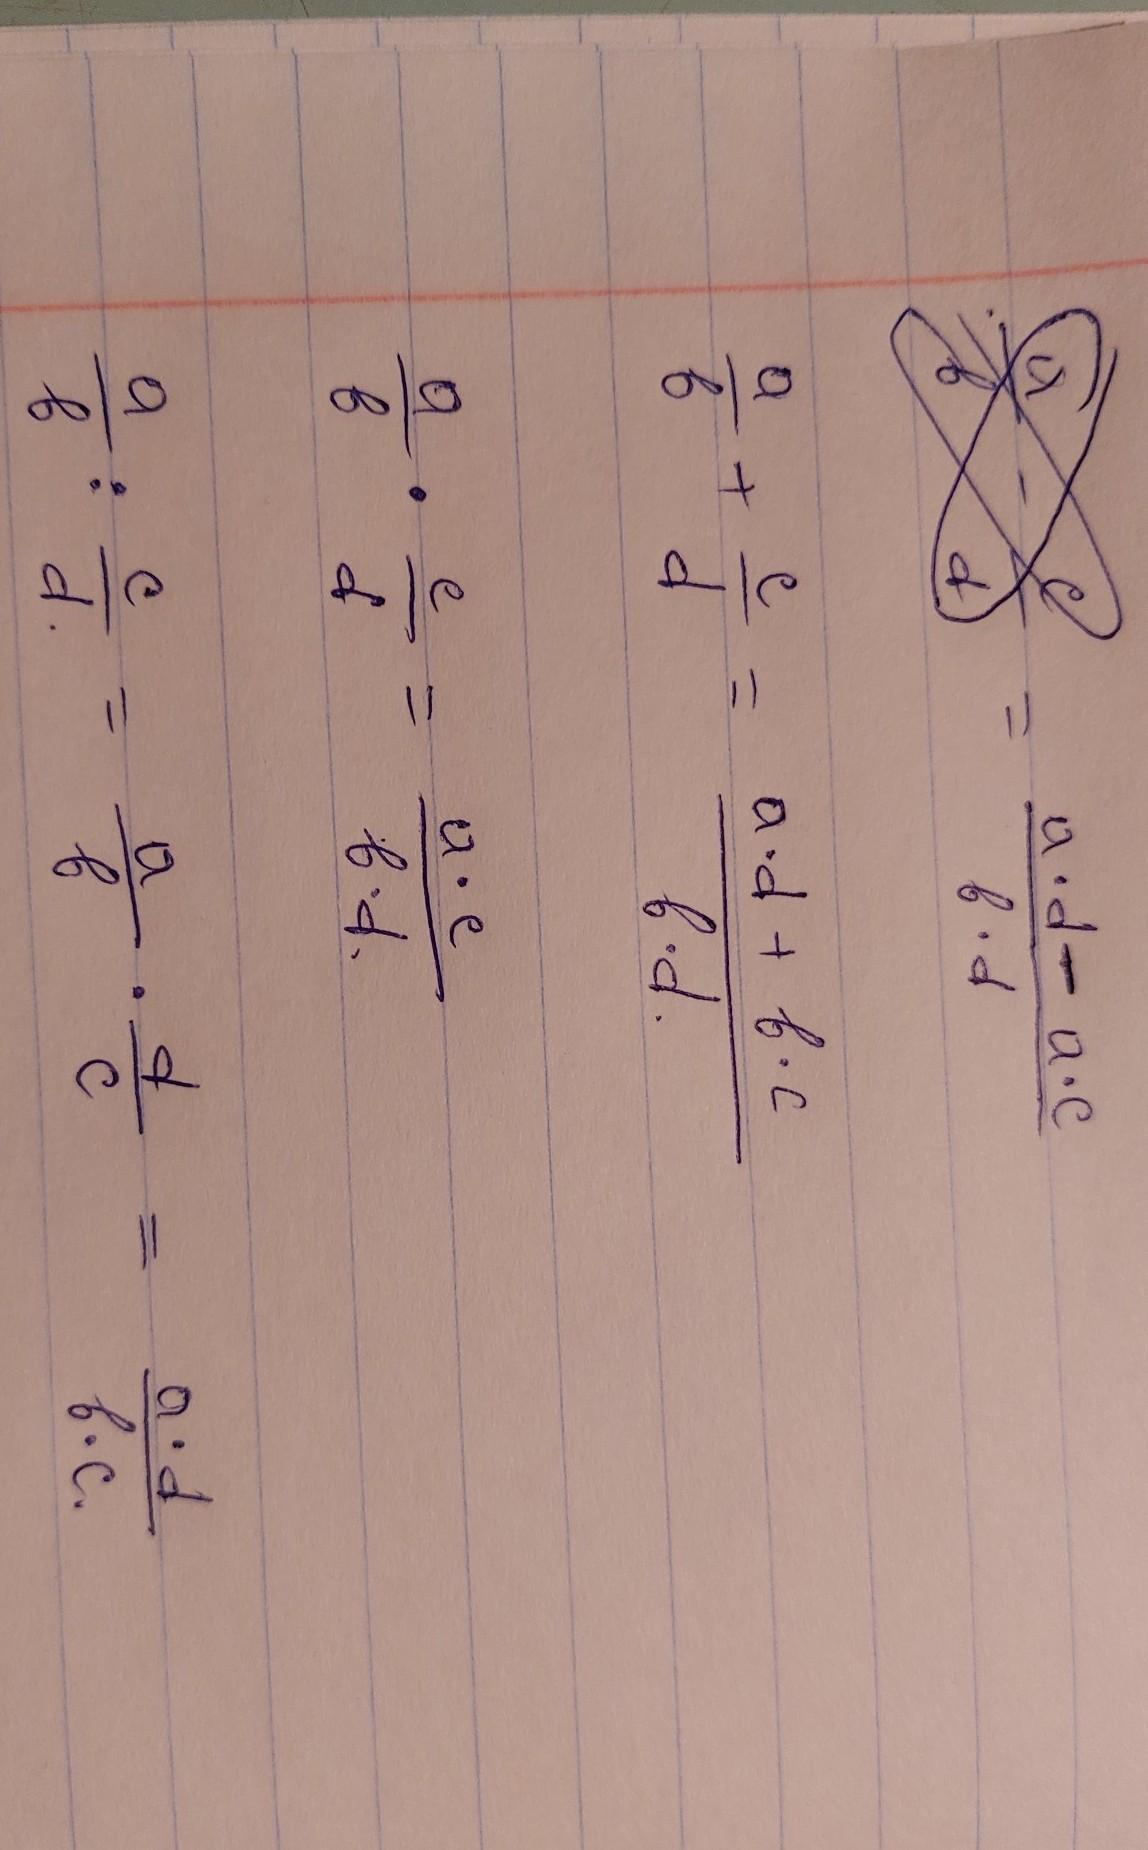 a/b - c/d = (a·d - a·c)/(b·d)
a/b + c/d = (a·d + b·c)/(b·d).
a/b · c/d = (a·c)/(b·d).
a/b : c/d. = a/b · d/c = (a·d)/(b·c).